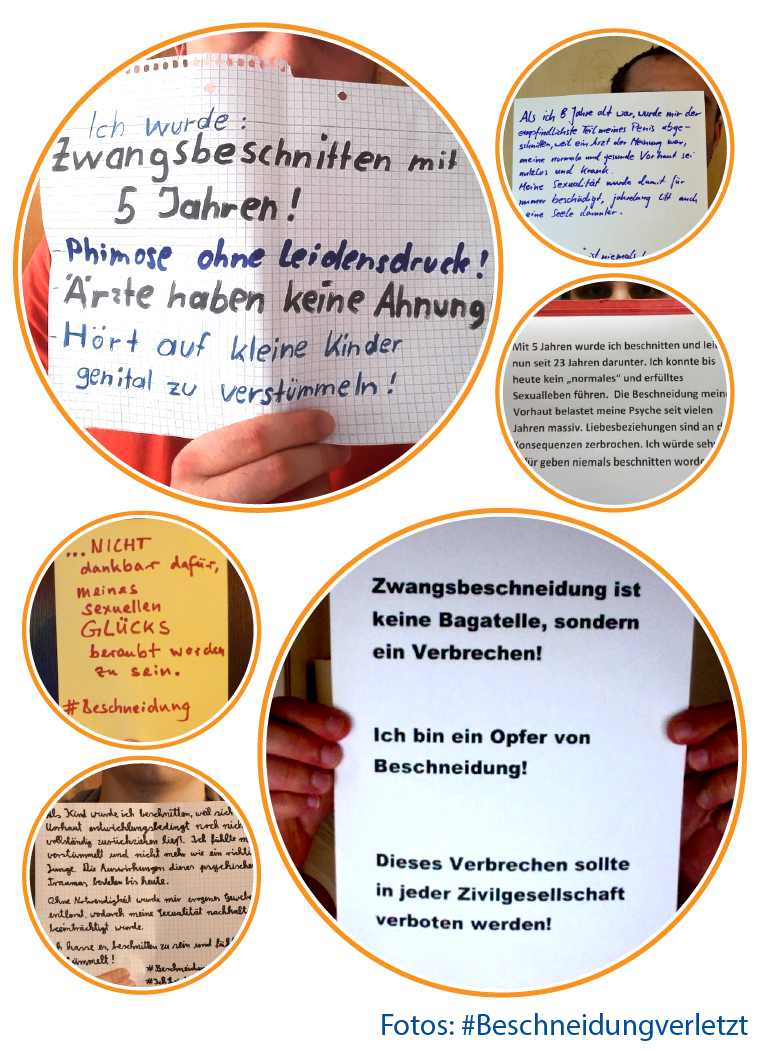 Ich wurde:
Zwangsbeschnitten mit
5 Jahren!
- Phimose ohne Leidensdruck!
- Ärzte haben keine Ahnung
- Hört auf kleine Kinder
genital zu verstümmeln!
Als ich 8 Jahre alt war, wurde mir der
empfindlichste Teil meines Penis abge-
schnitten, weil ein Arzt der Meinung war,
meine normale und gesunde Vorhaut sei
nutzlos und krank.
Meine Sexualität wurde damit für
immer beschädigt, jahrelang litt auch
eine Seele darunter.
ist niemals!
Mit 5 Jahren wurde ich beschnitten und lei
nun seit 23 Jahren darunter. Ich konnte bis
heute kein „normales“ und erfülltes
Sexualleben führen. Die Beschneidung mein
Vorhaut belastet meine Psyche seit vielen
Jahren massiv. Liebesbeziehungen sind an d
Konsequenzen zerbrochen. Ich würde seh
für geben niemals beschnitten word
...NICHT
dankbar dafür,
meines
sexuellen
GLÜCKS
beraubt worden
zu sein.
#Beschneidung
Zwangsbeschneidung ist
keine Bagatelle, sondern
ein Verbrechen!
Ich bin ein Opfer von
Beschneidung!
Dieses Verbrechen sollte
in jeder Zivilgesellschaft
verboten werden!
Als Kind wurde ich beschnitten, weil sich
Vorhaut entwicklungsbedingt noch nich
vollständig zurückziehen ließ. Ich fühlte m
verstümmelt und nicht mehr wie ein richti
Junge. Die Auswirkungen dieses psychische
Traumas bestehen bis heute.
Ohne Notwendigkeit wurde mir erogenes Geweb
entfernt, wodurch meine Sexualität nachhalt
beeinträchtigt wurde.
ch hasse es, beschnitten zu sein und füh
tümmelt!
#Beschneidu
Fotos: #Beschneidungverletzt